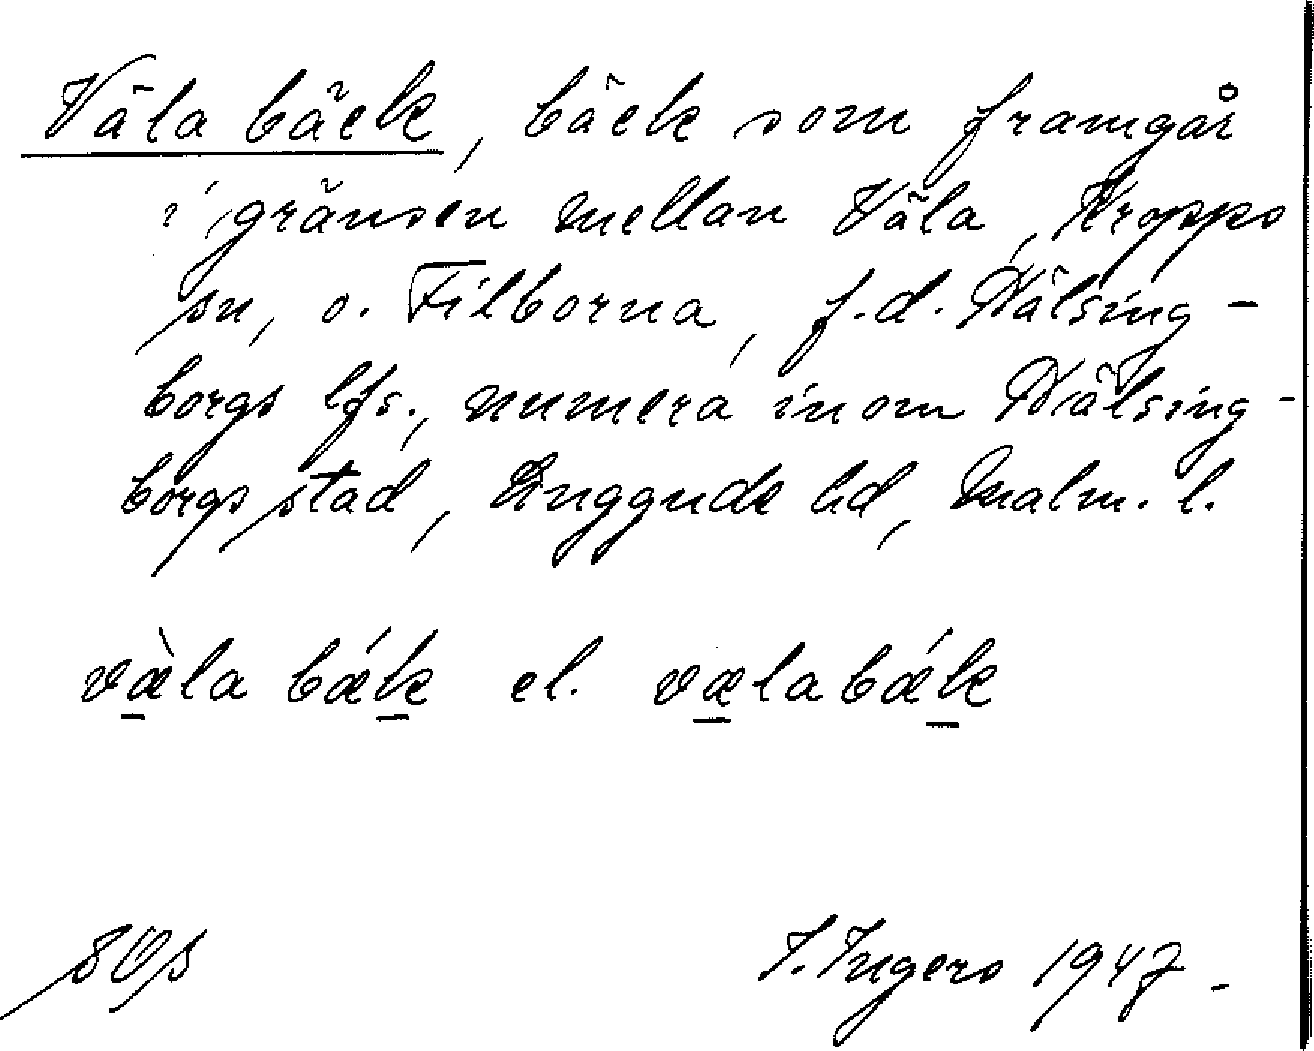 Väla bäck, bäck som framgår
i gränsen mellan Väla, Kropps
sn, o. Filborna, f.d. Hälsing-
borgs lfs., numera inom Hälsing-
borgs stad, Luggude hd, Malm. l.
væ̀la bǽk el. vælabǽk
I. Ingers 1947